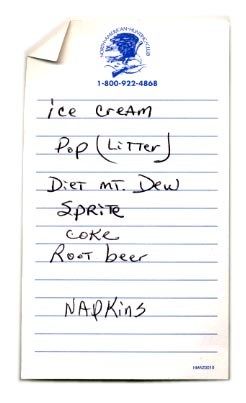 NORTH AMERICAN HUNTING CLUB
1-800-922-4868
ice cream
Pop (Litter)
Diet mt. Dew
Sprite
coke
Root beer
NAPKINS